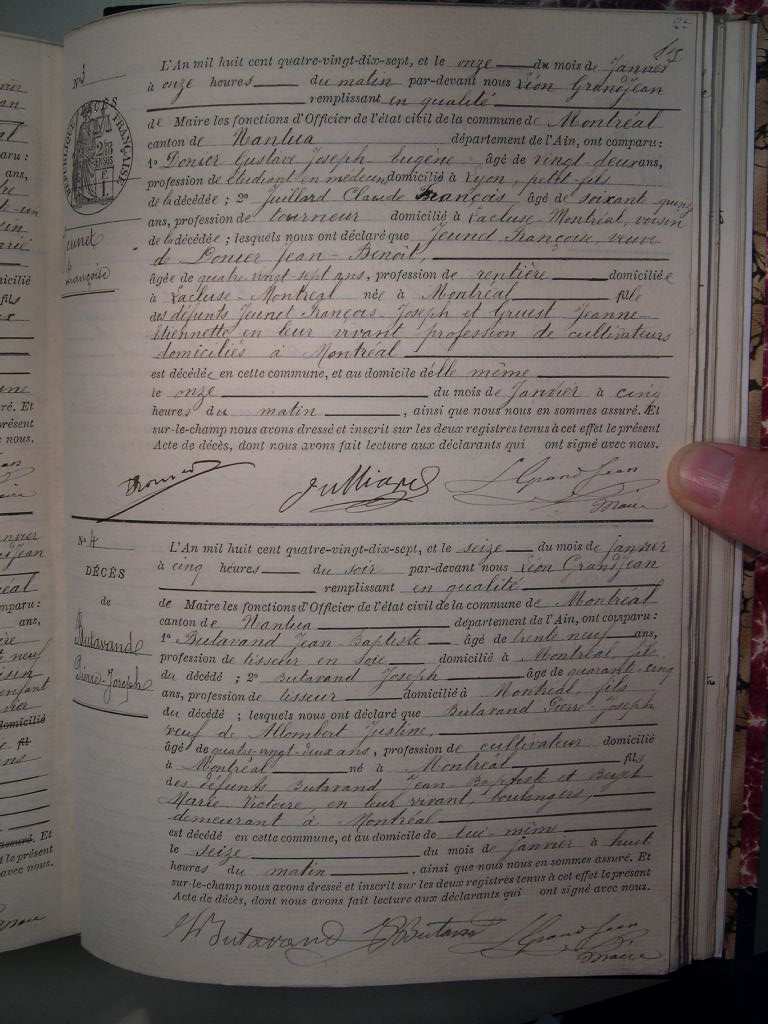 N° 3
L'An mil huit cent quatre-vingt-dix-sept, et le onze du mois de janvier
à onze heures du matin par-devant nous Léon Grandjean
remplissant en qualité
de Maire les fonctions d'Officier de l'état civil de la commune de Montréal
canton de Nantua département de l'Ain, ont comparu:
1° Gustave Joseph Eugène âgé de vingt deux ans,
profession de étudiant en médecine domicilié à Lyon, petit-fils
de la décédée ; 2° Juillard Claude François, âgé de soixante quinze
ans, profession de tourneur domicilié à Lacluse-Montréal, voisin
de la décédée ; lesquels nous ont déclaré que Jeunet Françoise, veuve
de Jean-Benoît,
âgée de quatre vingt sept ans, profession de rentière domiciliée
à Lacluse-Montréal née à Montréal fille
des défunts Jeunet François-Joseph et Jeanne-
Etiennette en leur vivant profession de cultivateurs
domiciliés à Montréal
est décédée en cette commune, et au domicile d'elle même
le onze du mois de janvier à cinq
heures du matin, ainsi que nous nous en sommes assuré. Et
sur-le-champ nous avons dressé et inscrit sur les deux registres tenus à cet effet le présent
Acte de décès, dont nous avons fait lecture aux déclarants qui ont signé avec nous.
Juilliard L Grand Jean
Maire
RÉPUBLIQUE FRANÇAISE
Jeunet
Françoise
N° 4
DÉCÈS
de
Butavand
Pierre-Joseph
L'An mil huit cent quatre-vingt-dix-sept, et le seize du mois de janvier
à cinq heures du soir par-devant nous Léon Grandjean
remplissant en qualité
de Maire les fonctions d'Officier de l'état civil de la commune de Montréal
canton de Nantua département de l'Ain, ont comparu:
1° Butavand Jean Baptiste âgé de trente neuf ans,
profession de tisseur en soie domicilié à Montréal, fils
du décédé ; 2° Butavand Joseph âgé de quarante cinq
ans, profession de tisseur domicilié à Montréal, fils
du décédé ; lesquels nous ont déclaré que Butavand Pierre-Joseph
veuf de Mombert Justine,
âgé de quatre-vingt-deux ans, profession de cultivateur domicilié
à Montréal né à Montréal fils
des défunts Butavand Jean Baptiste et
Marie Victoire, en leur vivant, boulangers,
demeurant à Montréal
est décédé en cette commune, et au domicile de lui-même
le seize du mois de janvier à huit
heures du matin, ainsi que nous nous en sommes assuré. Et
sur-le-champ nous avons dressé et inscrit sur les deux registres tenus à cet effet le présent
Acte de décès, dont nous avons fait lecture aux déclarants qui ont signé avec nous.
Butavand Butavand L Grand Jean
Maire